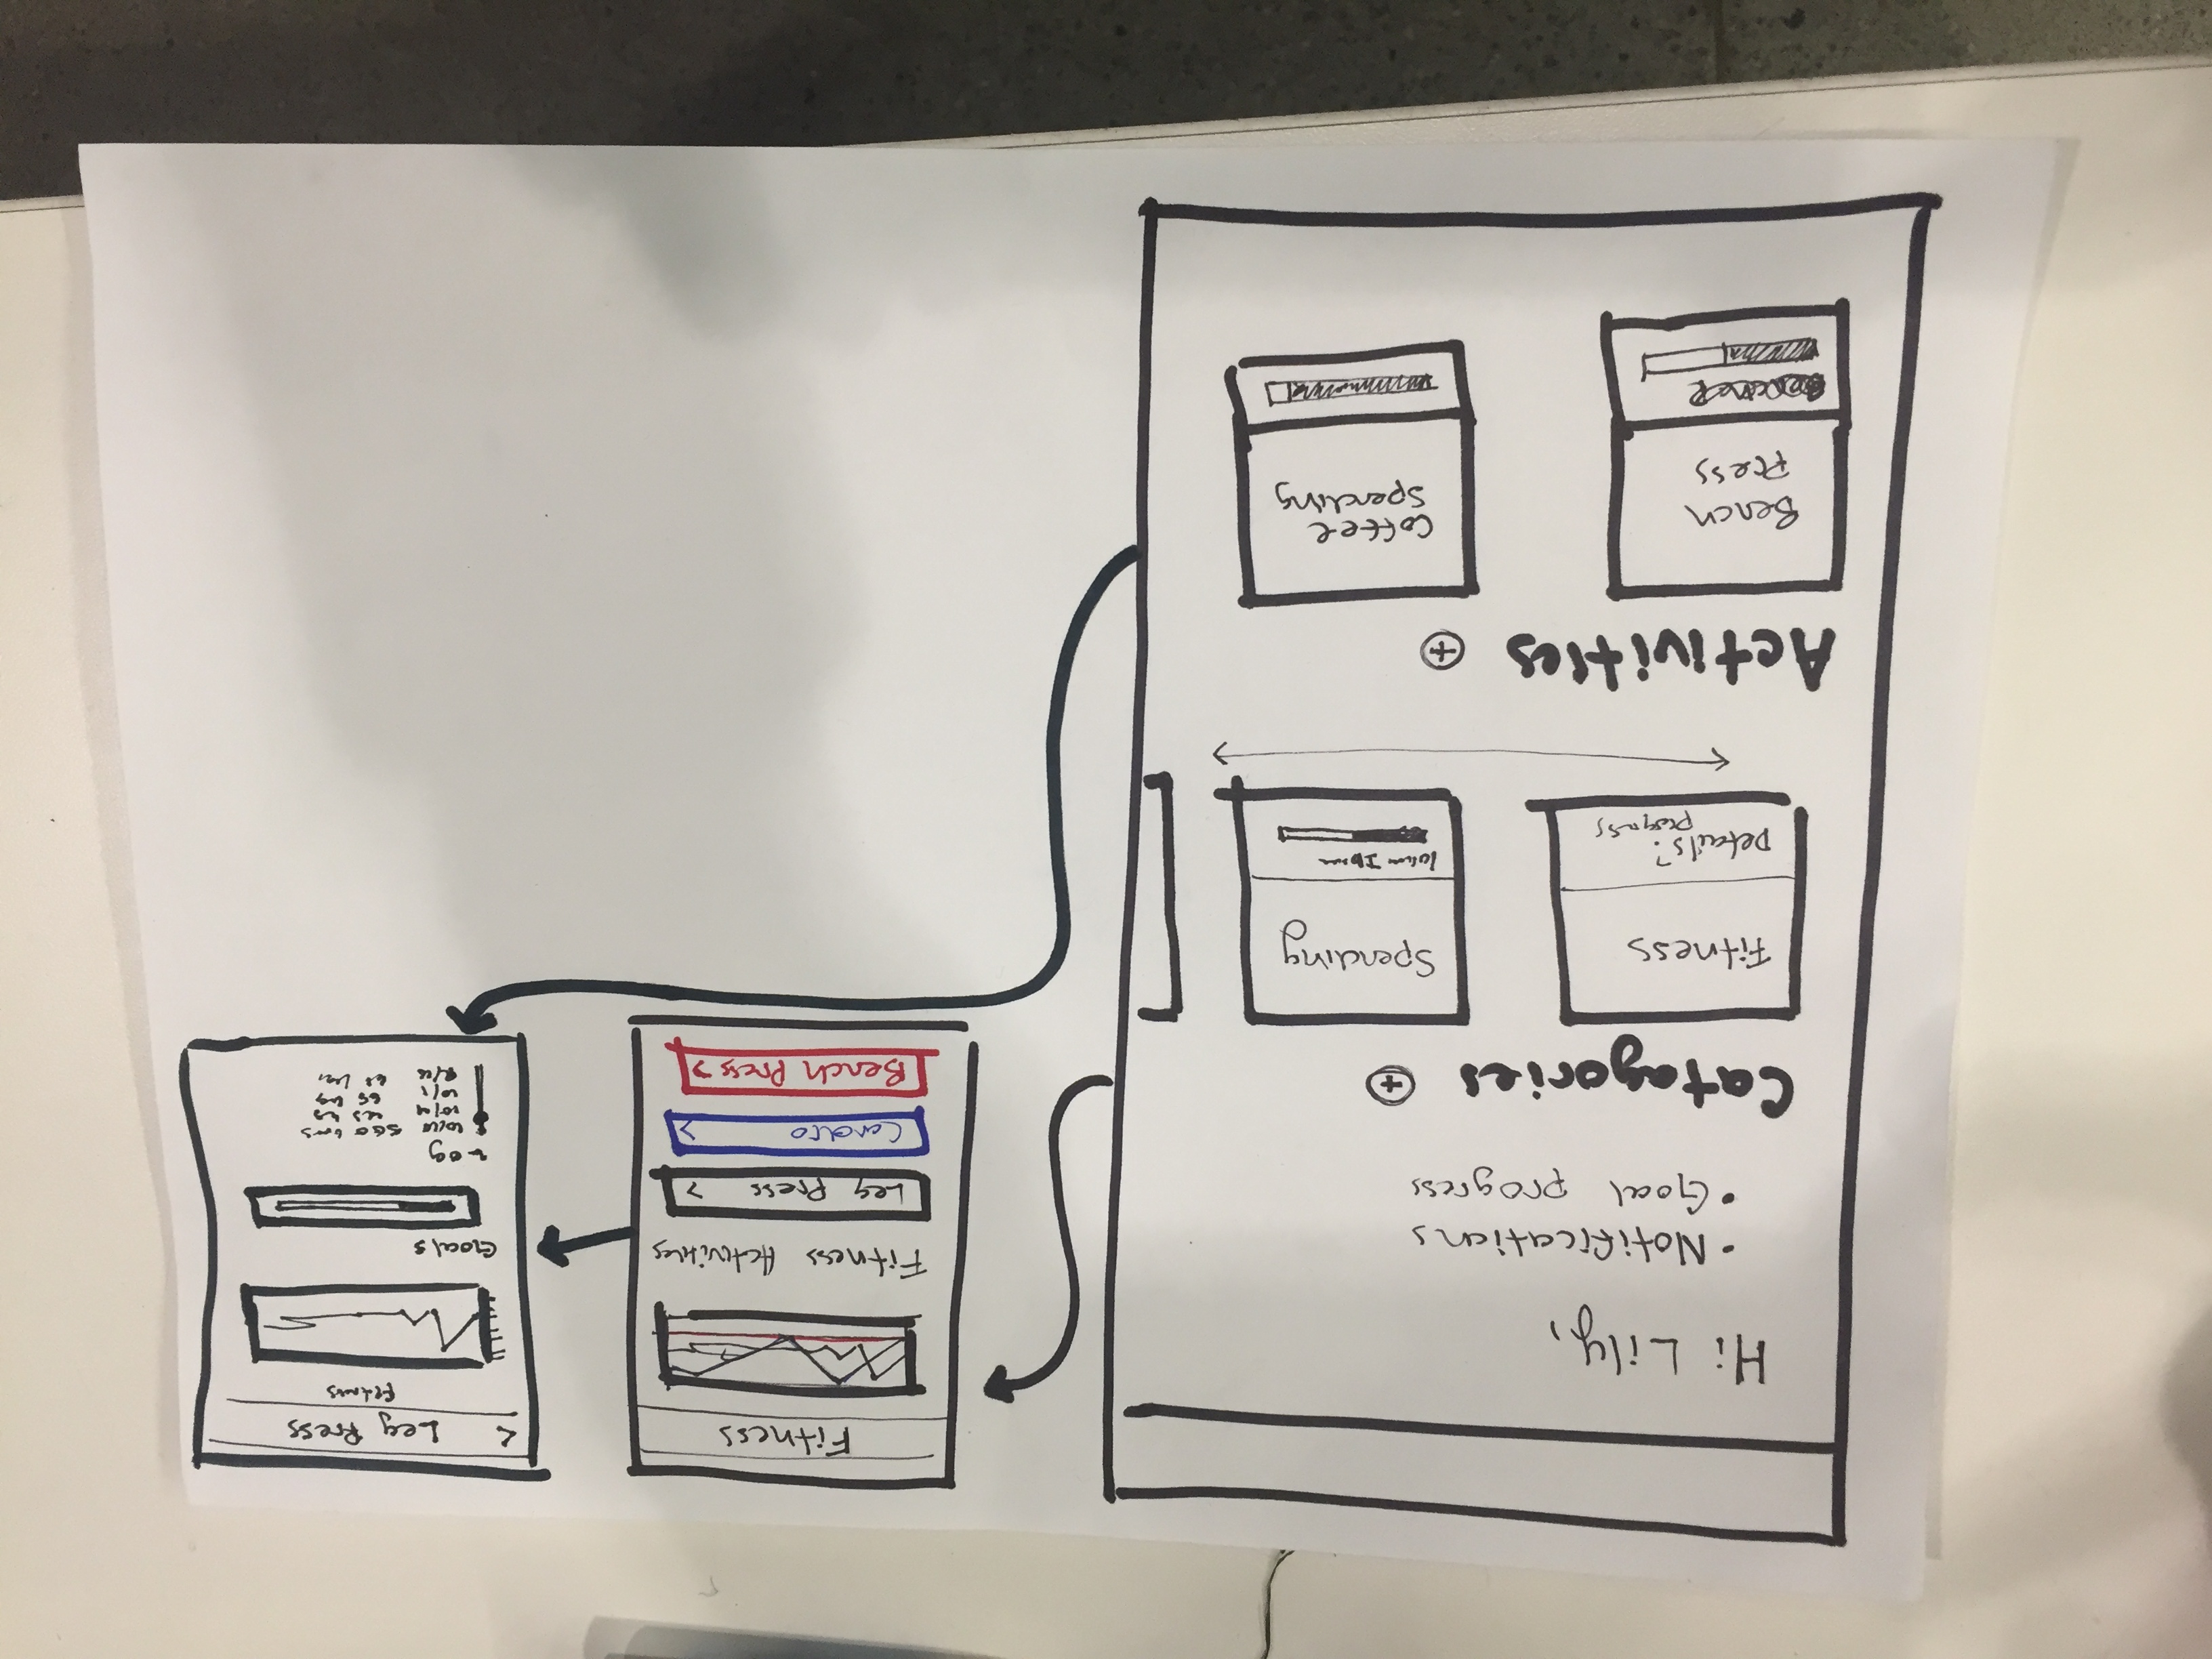 Hi Lily,
• Notifications
• Goal progress
Catagories +
Fitness
Details?
progress
Spending
Activities +
Bench
Press
Coffee
Spending
Fitness
Fitness Activities
Leg Press >
Cardio >
Bench Press >
< Leg Press
Fitness
Goals
Log